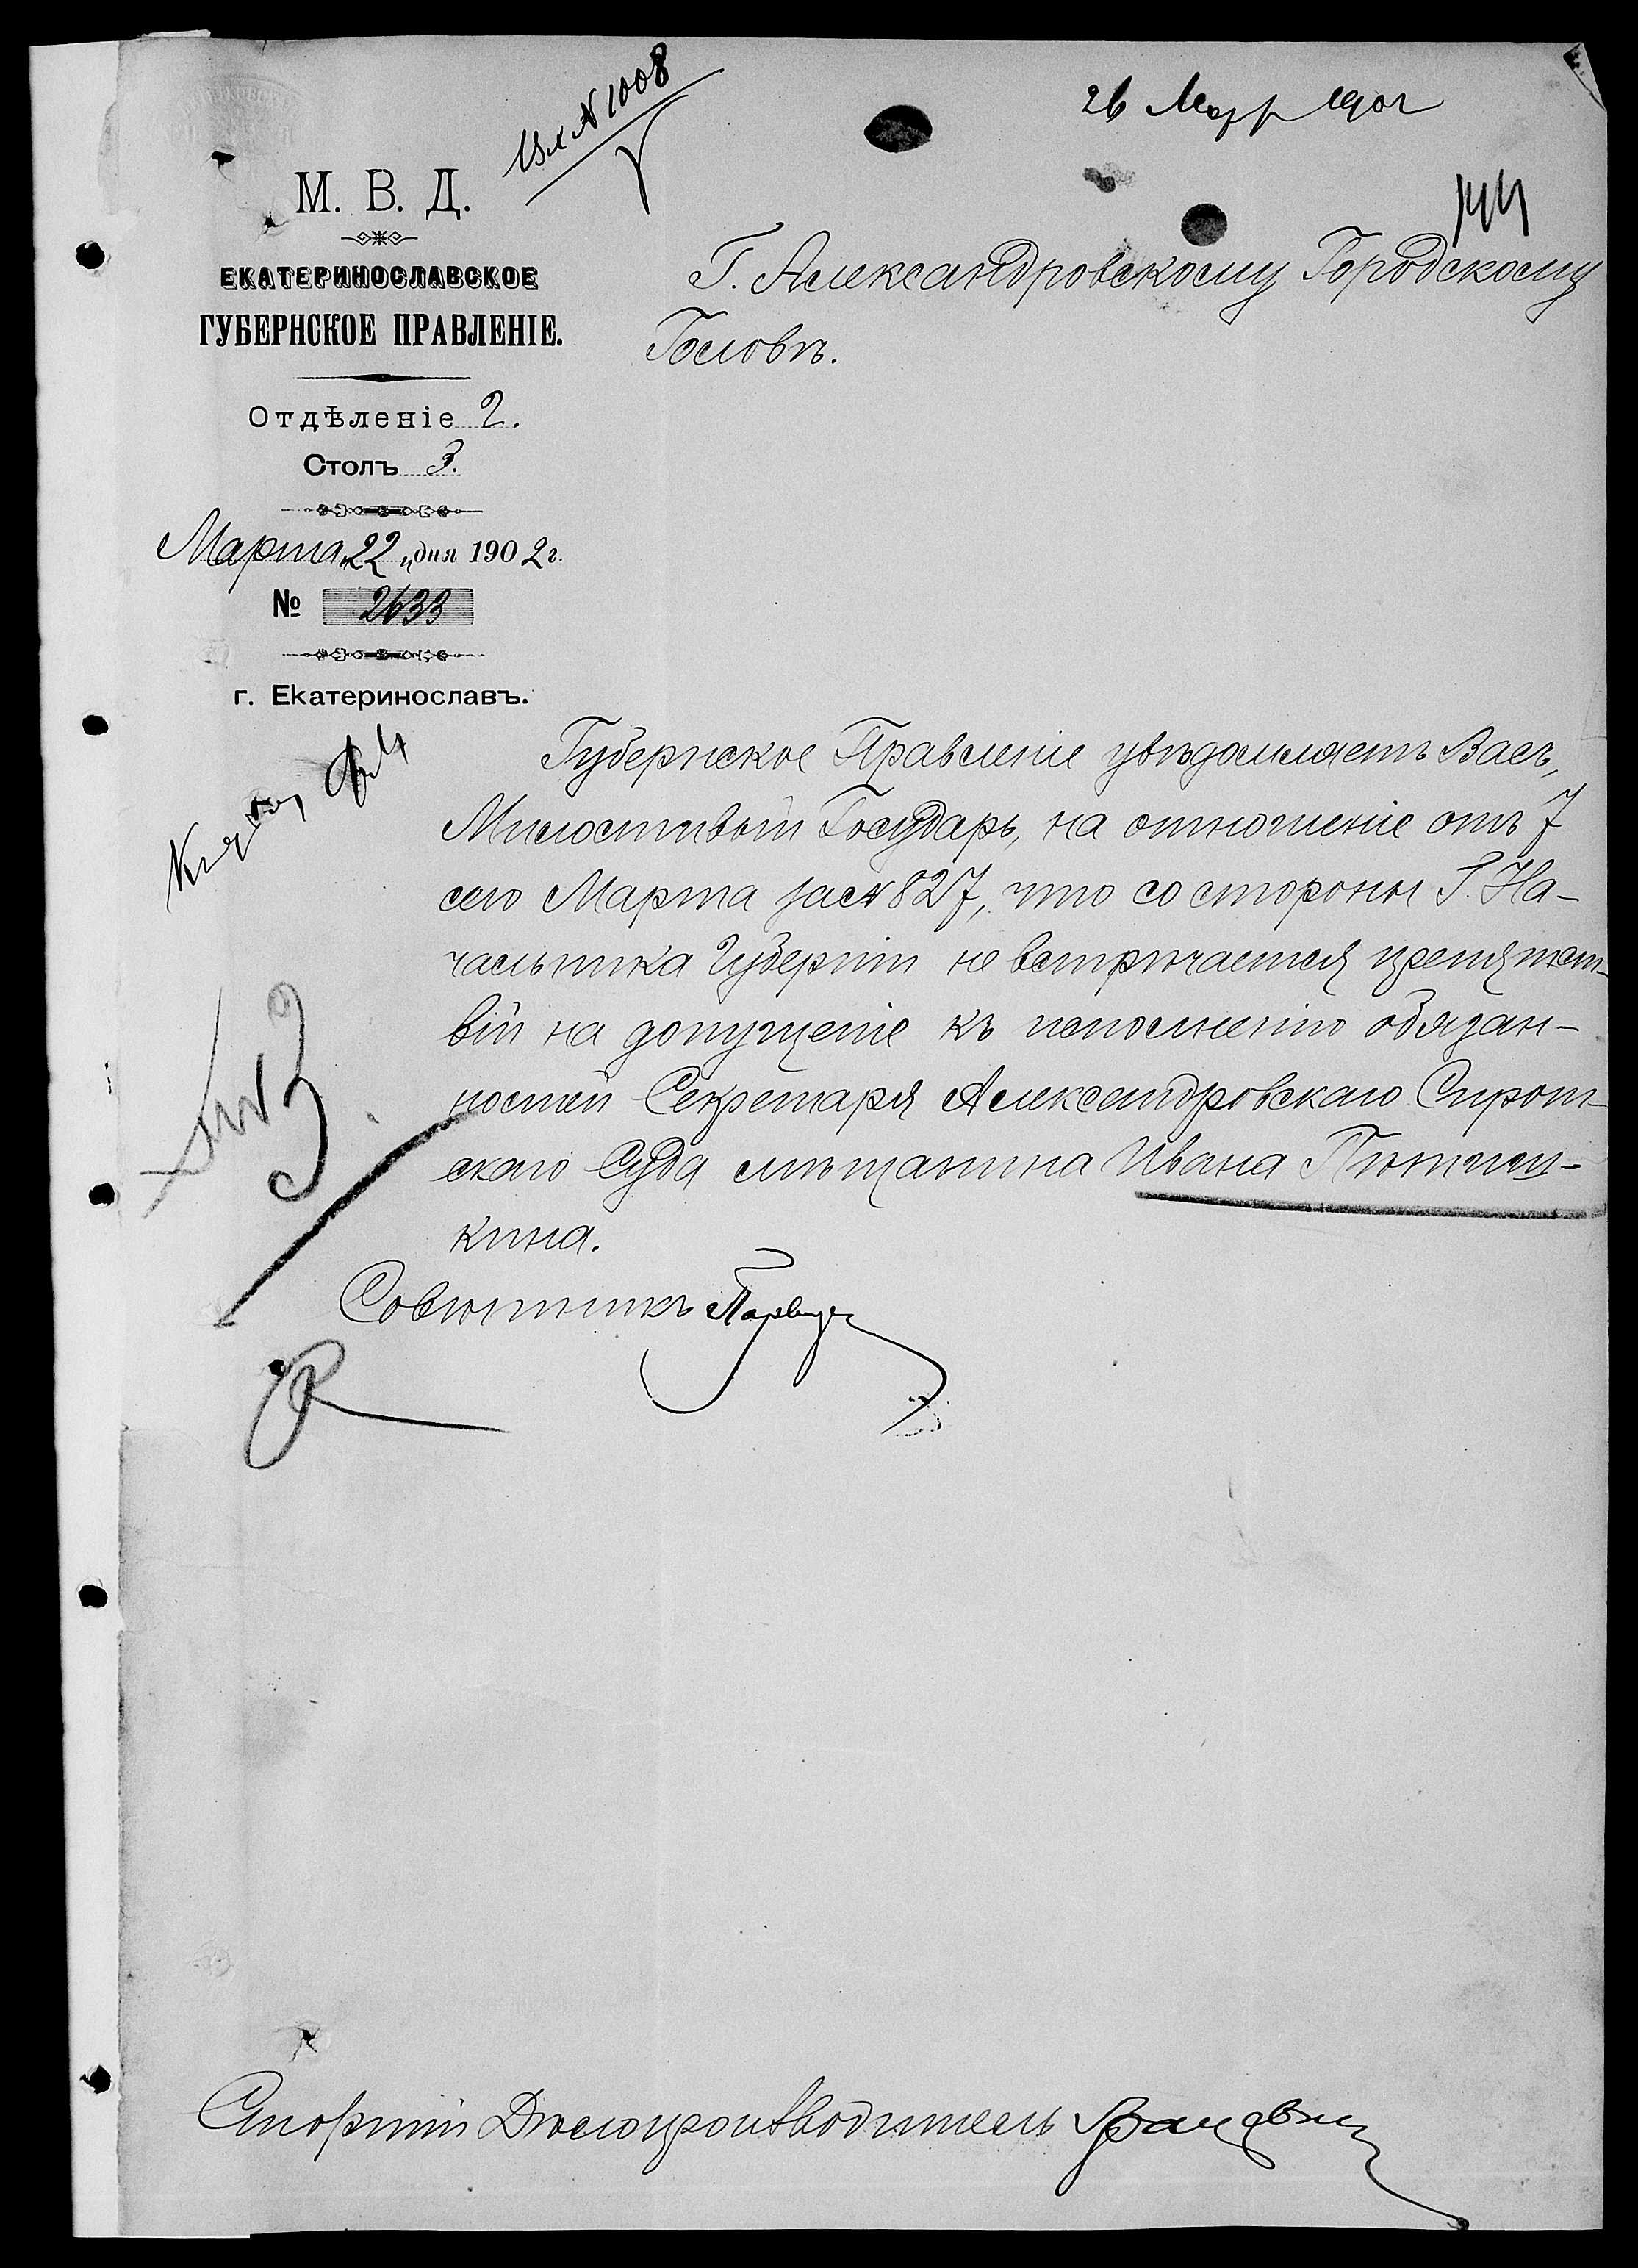 26 Мар 1902
Вх № 1008
144
М. В. Д.
ЕКАТЕРИНОСЛАВСКОЕ
ГУБЕРНСКОЕ ПРАВЛЕНІЕ.
Отдѣленіе 2.
Столъ 3.
Марта „22„ дня 1902 г.
№ 2633
г. Екатеринославъ.
Г. Александровскому Городскому
Головѣ.
Губернское Правленіе увѣдомляетъ Васъ,
Милостивый Государь, на отношеніе отъ 7
сего Марта за № 827, что со стороны Г. На-
чальника Губерніи не встрѣчается препятст-
вій на допущеніе къ исполненію обязан-
ностей Секретаря Александровскаго Сирот-
скаго Суда мѣщанина Ивана
кина.
Совѣтникъ
Старшій Дѣлопроизводитель